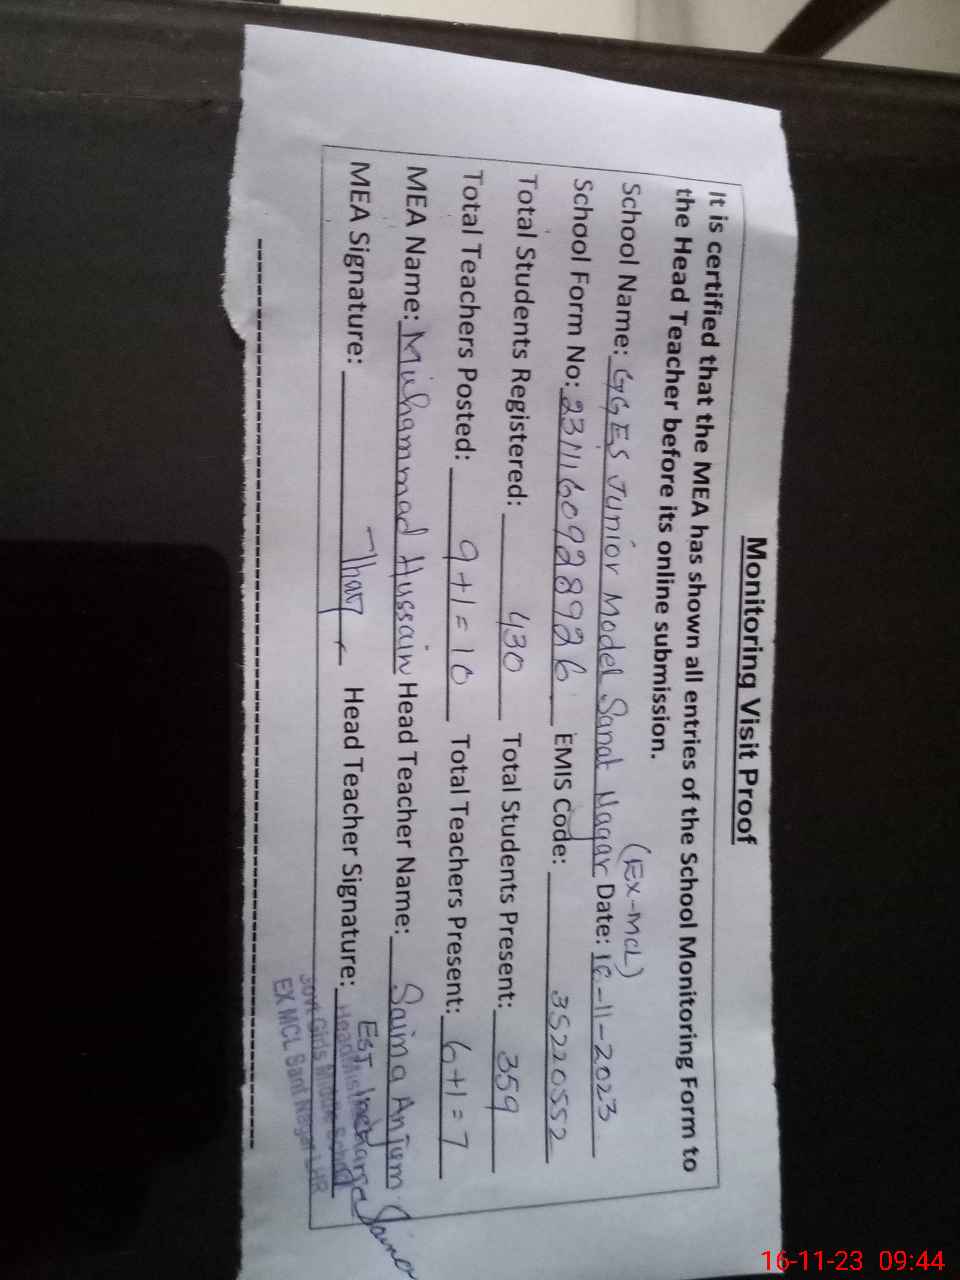 Monitoring Visit Proof
It is certified that the MEA has shown all entries of the School Monitoring Form to
the Head Teacher before its online submission.
(Ex-MCL)
School Name: GGES Junior Model Sanat Nagar Date: 16-11-2023
School Form No: 231116092 8926 EMIS Code: 35220552
Total Students Registered: 430 Total Students Present: 359
Total Teachers Posted: 9+1=10 Total Teachers Present: 6+1=7
MEA Name: Muhammad Hussain Head Teacher Name: Saima Anjum
MEA Signature: Head Teacher Signature: Saima
EST Incharge
Headmistress
Govt Girls Middle School
EX MCL Sant Nagar LHR
16-11-23 09:44